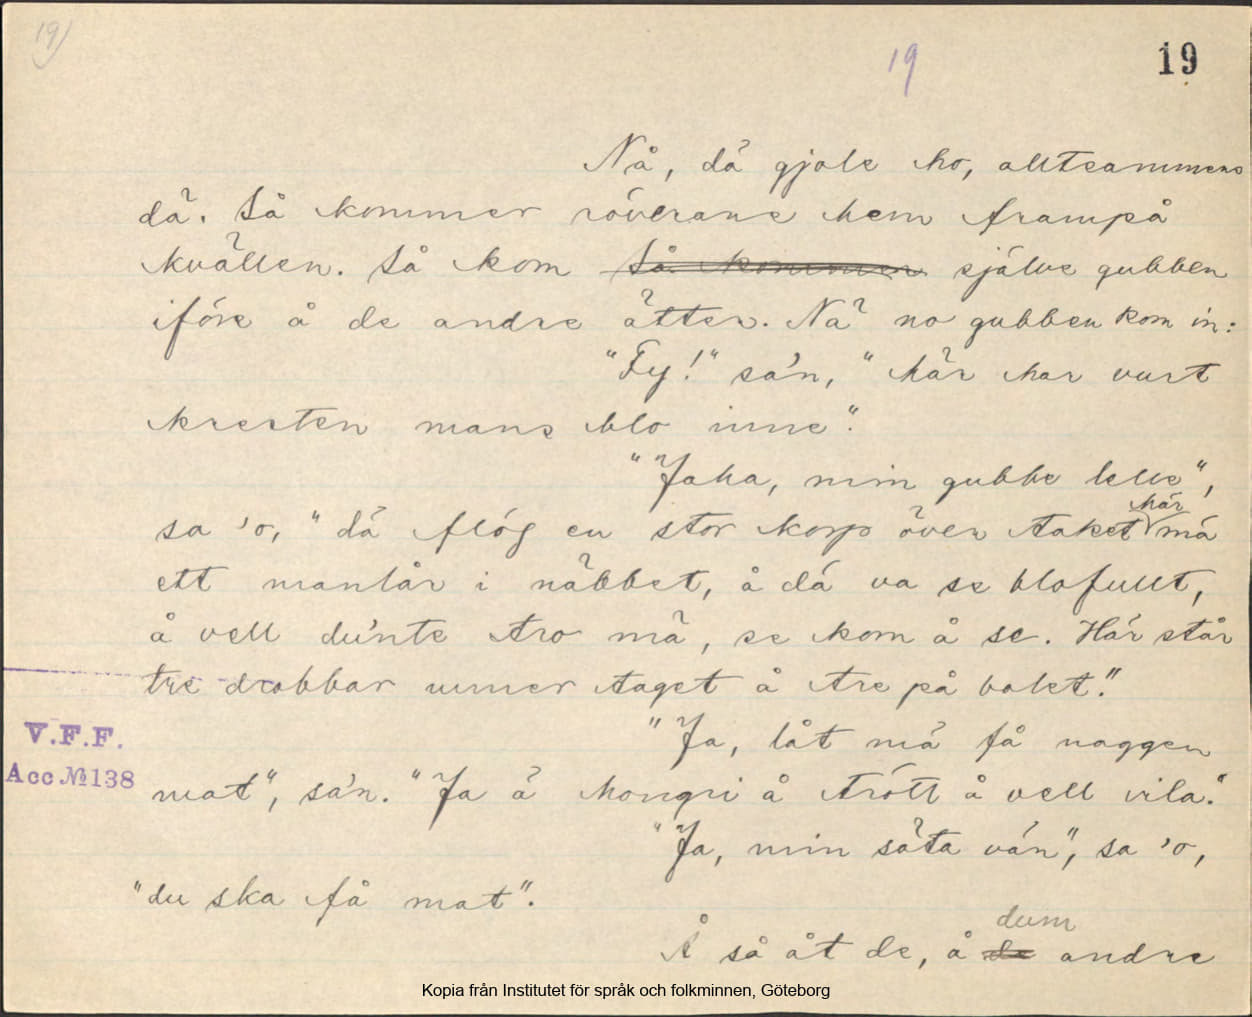 19)
19
19
Nå, dä gjole ho, alltsammens
dä. Så kommer röverane hem frampå
kvällen. Så kom Så kommer själve gubben
iföre å de andre ätter. Nä no gubben kom in:
"Fy!" sa'n, "här har vurt
kresten mans blo inne".
"Jaha, min gubbe lelle",
sa 'o, "dä flög en stor korp över taket här mä
ett manlår i näbbet, å dä va se blofullt,
å vell du'nte tro mä, se kom å se. Här står
tre drobbar unner taget å tre på bolet."
"Ja, låt mä få naggen
mat", sa'n. "Ja ä hongri å trött å vell vila."
"Ja, min säta vän", sa 'o,
"du ska få mat".
Å så åt de, å de dum andre
V.F.F.
Acc № 138
Kopia från Institutet för språk och folkminnen, Göteborg